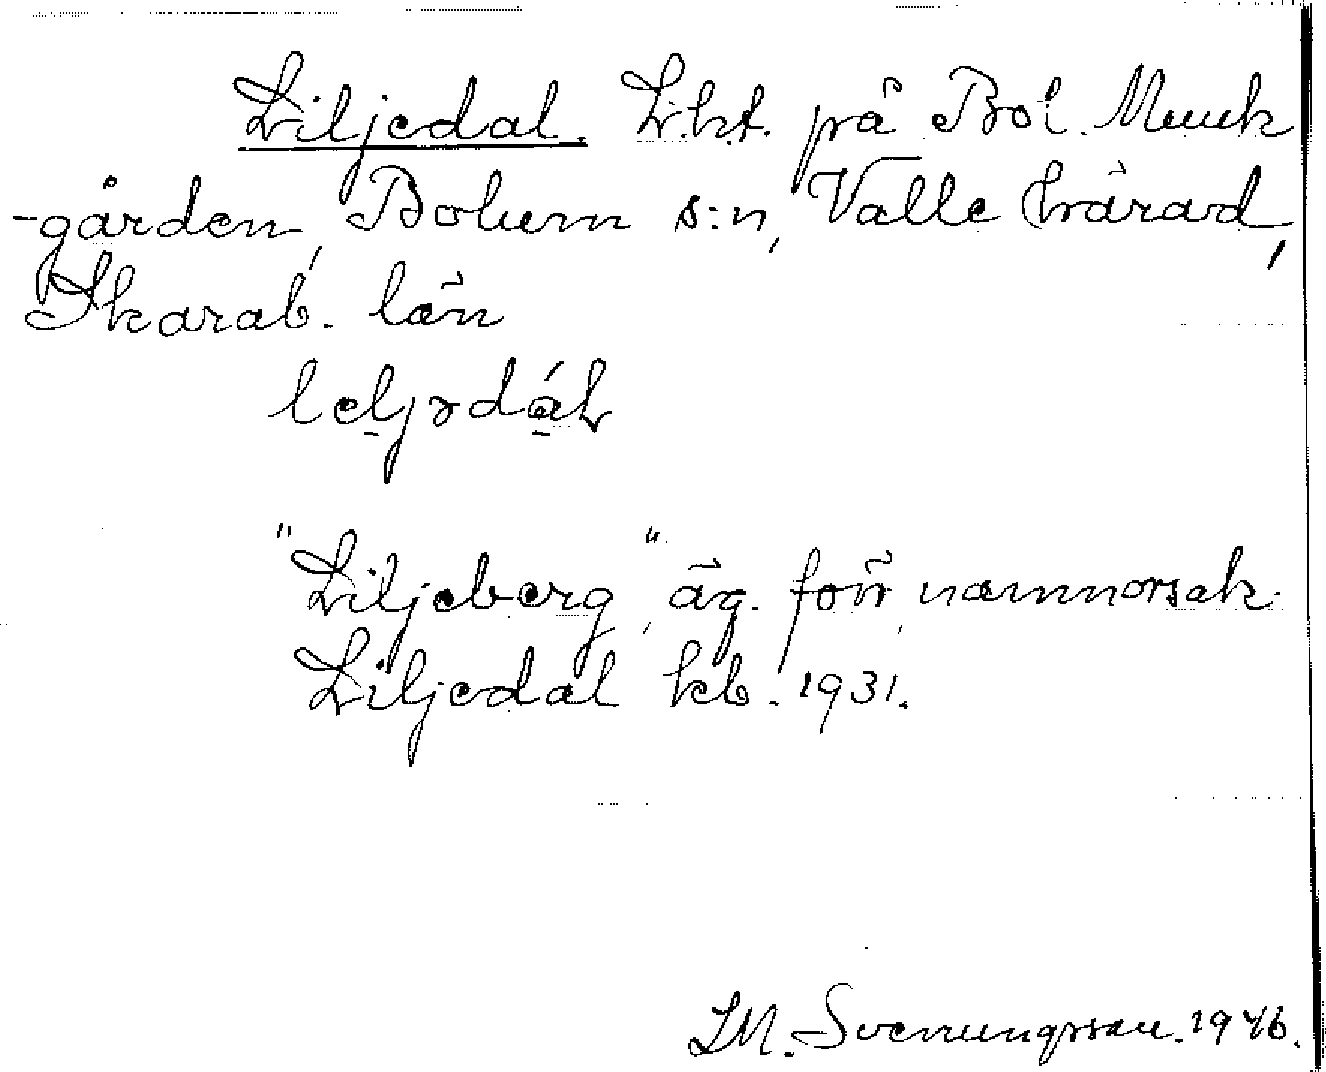 Liljedal. Lht. på Bol. Munk
-gården, Bolum s:n, Valle härad,
Skarab. län
leljədáL
"Liljeberg", äg. för namnorsak.
Liljedal kb. 1931.
S.M. Svenungsson. 1946.